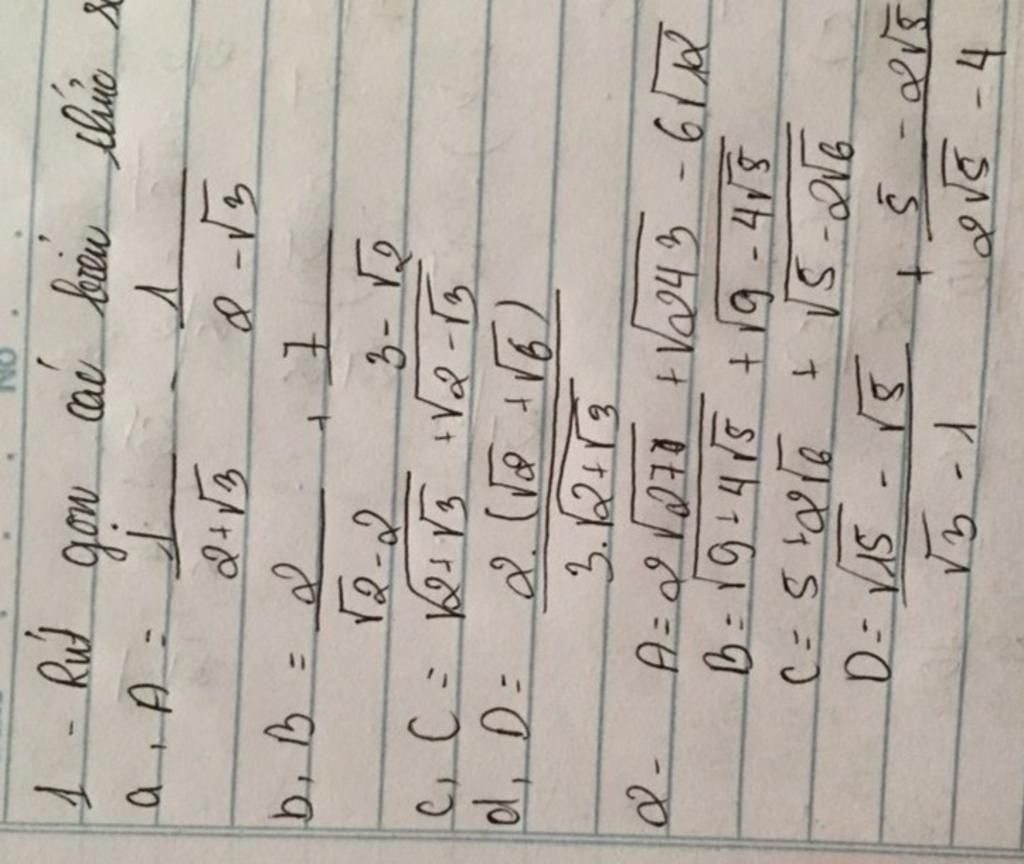 1 - Rút gọn các biểu thức
a, A = 1/(2+√3) - 1/(2-√3)
b, B = 2/(√2-2) + 7/(3-√2)
c, C = √(2+√3) + √(2-√3)
d, D = 2.(√2+√6)/(3.√(2+√3))
2 - A = 2√27 + √243 - 6√12
B = √(9+4√5) + √(9-4√5)
C = 5+2√6 + √(5-2√6)
D = (√15-√5)/(√3-1) + (5-2√5)/(2√5-4)